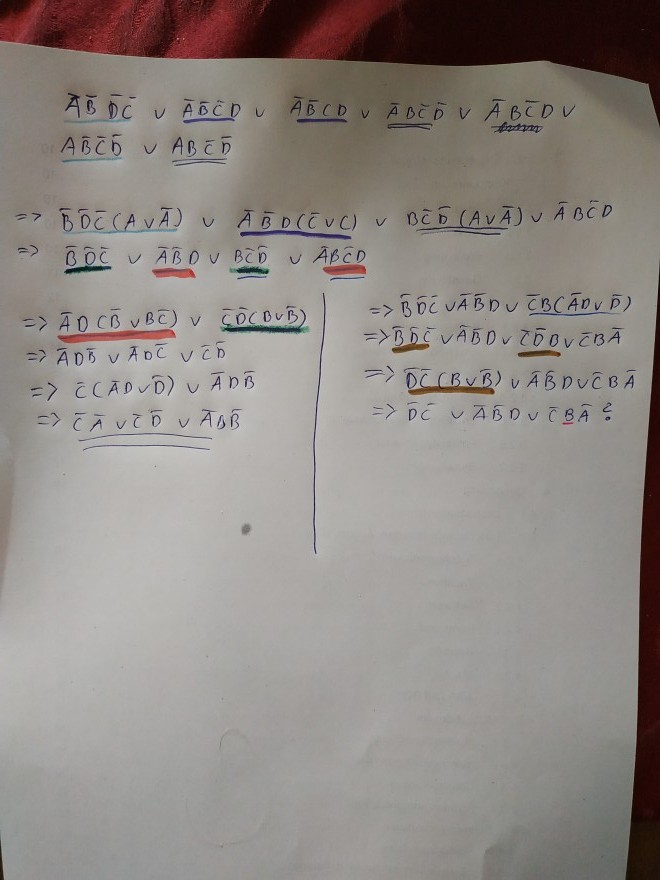 A̅ B̅ D̅ C̅ ∨ A̅ B̅ C̅ D ∨ A̅ B̅ C D ∨ A̅ B C̅ D̅ ∨ A̅ B C̅ D ∨
A B̅ C̅ D̅ ∨ A B C̅ D̅
=> B̅ D̅ C̅ (A ∨ A̅) ∨ A̅ B̅ D (C̅ ∨ C) ∨ B C̅ D̅ (A ∨ A̅) ∨ A̅ B C̅ D
=> B̅ D̅ C̅ ∨ A̅ B̅ D ∨ B C̅ D̅ ∨ A̅ B C̅ D
=> A̅ D (B̅ ∨ B C̅) ∨ C̅ D̅ (B ∨ B̅)
=> A̅ D B̅ ∨ A̅ D C̅ ∨ C̅ D̅
=> C̅ (A̅ D ∨ D̅) ∨ A̅ D B̅
=> C̅ A̅ ∨ C̅ D̅ ∨ A̅ D B̅
=> B̅ D̅ C̅ ∨ A̅ B̅ D ∨ C̅ B (A̅ D ∨ D̅)
=> B̅ D̅ C̅ ∨ A̅ B̅ D ∨ C̅ D̅ B ∨ C̅ B A̅
=> D̅ C̅ (B ∨ B̅) ∨ A̅ B̅ D ∨ C̅ B A̅
=> D̅ C̅ ∨ A̅ B̅ D ∨ C̅ B A̅ ?